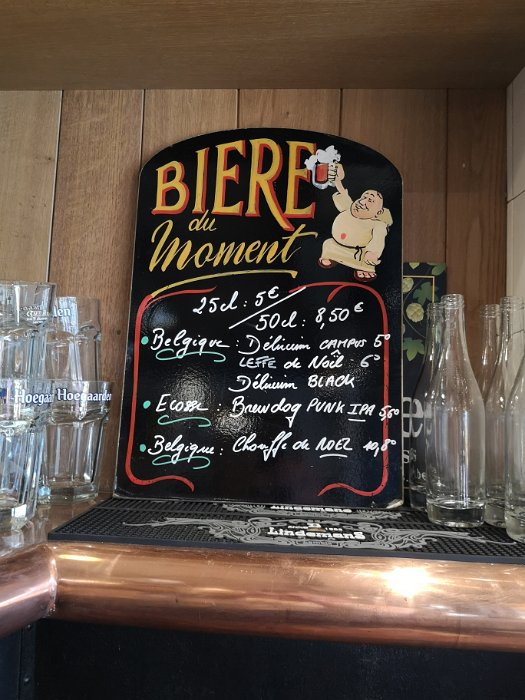 BIERE
du
Moment
25cl : 5€
50cl : 8,50€
Belgique : Délirium CAMPUS 5°
LEFFE de Noël : 6°
Délirium BLACK
Ecosse : Brewdog PUNK IPA 5,6°
Belgique : Chouffe de NOEL 10,8°
Hoegaarden
Lindemans
Lindemans